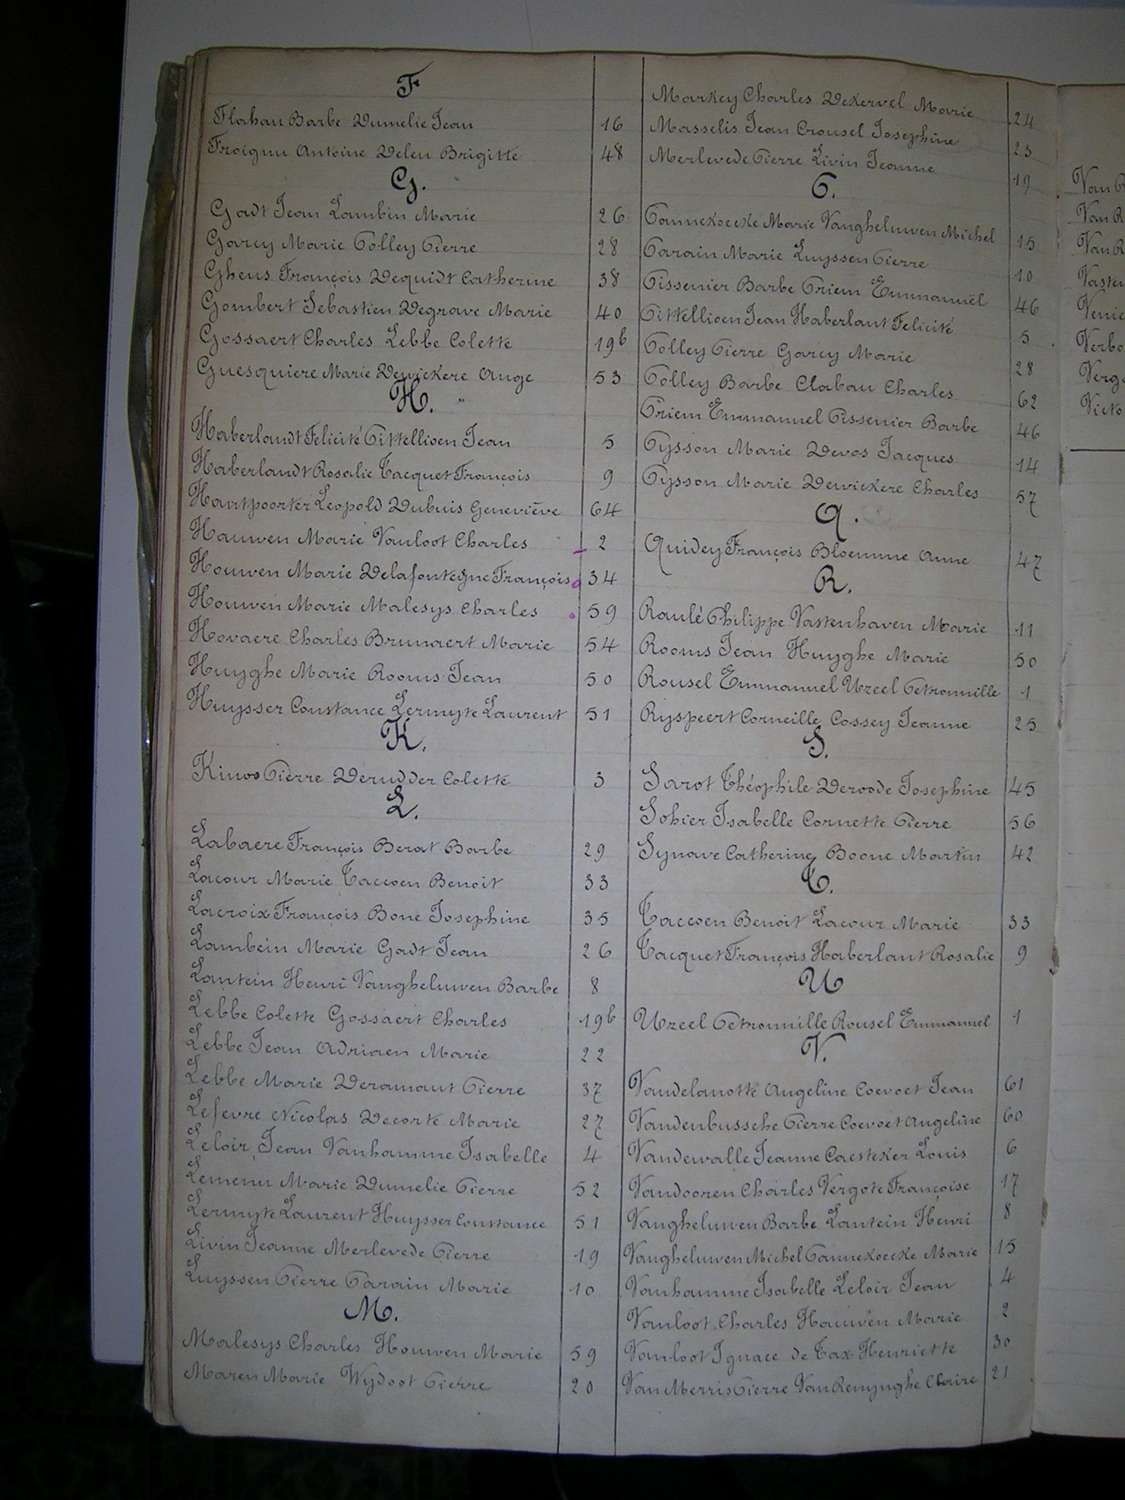 F
Flahau Barbe Dumelie Jean 16
Froignu Antoine Deleu Brigitte 48
G.
Gadt Jean Lambin Marie 26
Garcy Marie Polley Pierre 28
Gheus François Dequidt Catherine 38
Gombert Sébastien Degrave Marie 40
Gossaert Charles Lebbe Colette 19b
Guesquiere Marie Dewickere Ange 53
H.
Haberlandt Felicité Pittellioen Jean 5
Haberlandt Rosalie Tacquet François 9
Hartpoorter Leopold Dubuis Geneviève 64
Hauwen Marie Vanloot Charles 2
Houwen Marie Delafonteyne François 34
Houwen Marie Malesys Charles 59
Hovaere Charles Brunaert Marie 54
Huyghe Marie Rooms Jean 50
Huysser Constance Lermyte Laurent 51
K.
Kinoo Pierre Derudder Colette 3
L.
Labaere François Berat Barbe 29
Lacour Marie Taccoen Benoit 33
Lacroix François Bone Josephine 35
Lambein Marie Gadt Jean 26
Lantein Henri Vangheluwen Barbe 8
Lebbe Colette Gossaert Charles 19b
Lebbe Jean Adriaen Marie 22
Lebbe Marie Deramaut Pierre 37
Lefevre Nicolas Decorte Marie 27
Leloir Jean Vanhamme Isabelle 4
Lemenu Marie Dumelie Pierre 52
Lermyte Laurent Huysser Constance 51
Livin Jeanne Merlevede Pierre 19
Luyssen Pierre Parain Marie 10
M.
Malesys Charles Houwen Marie 59
Maren Marie Wydoot Pierre 20
Markey Charles Dekervel Marie 24
Masselis Jean Crousel Josephine 23
Merlevede Pierre Livin Jeanne 19
P.
Pannekoecke Marie Vangheluwen Michel 15
Parain Marie Luyssen Pierre 10
Pissenier Barbe Priem Emmanuel 46
Pittellioen Jean Haberlant Felicité 5
Polley Pierre Garcy Marie 28
Polley Barbe Clabau Charles 62
Priem Emmanuel Pissenier Barbe 46
Pysson Marie Devos Jacques 14
Pysson Marie Dewickere Charles 57
Q.
Quidey François Bloemme Anne 47
R.
Raulé Philippe Vastenhaven Marie 11
Rooms Jean Huyghe Marie 50
Rousel Emmanuel Uzeel Petronnille 1
Ryspeert Corneille Cossey Jeanne 25
S.
Sarot Théophile Deroode Josephine 45
Sohier Isabelle Cornette Pierre 56
Synave Catherine Boone Martin 42
T.
Taccoen Benoit Lacour Marie 33
Tacquet François Haberlant Rosalie 9
U
Uzeel Petronnille Rousel Emmanuel 1
V.
Vandelanotte Angeline Coevoet Jean 61
Vandenbussche Pierre Coevoet Angeline 60
Vandewalle Jeanne Caesteker Louis 6
Vandooren Charles Vergote Françoise 17
Vangheluwen Barbe Lantein Henri 8
Vangheluwen Michel Pannekoecke Marie 15
Vanhamme Isabelle Leloir Jean 4
Vanloot Charles Hauwen Marie 2
Vanloot Ignace de Tax Henriette 30
Van Merris Pierre Van Renynghe Claire 21